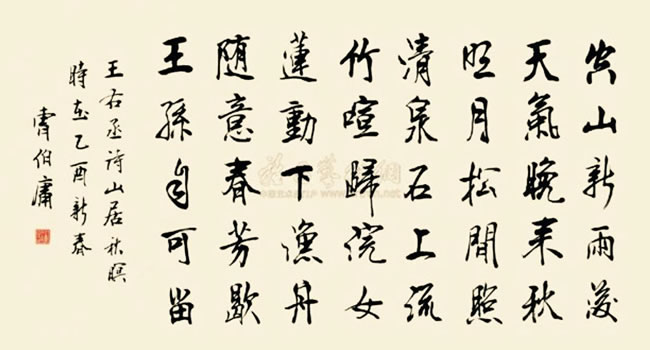 空山新雨後
天氣晚来秋
明月松間照
清泉石上流
竹喧歸浣女
蓮動下漁舟
随意春芳歇
王孫自可留
王右丞詩山居秋暝
時在乙酉新春
曹伯庸